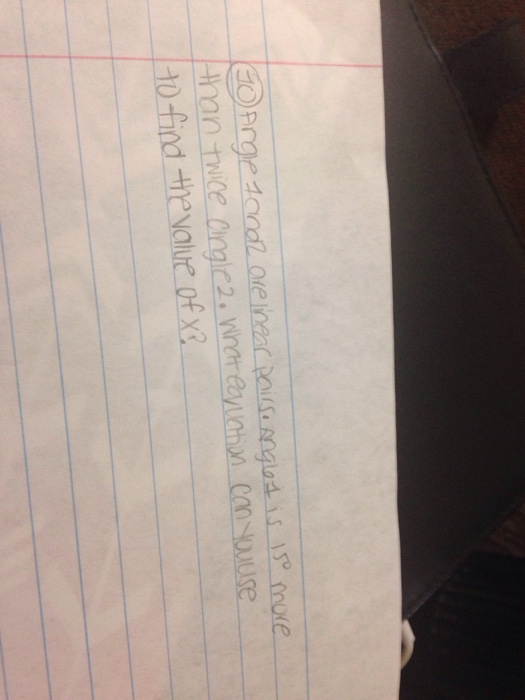 10 Angle 1 and 2 are linear pairs. Angle 1 is 15° more
than twice angle 2. What equation can you use
to find the value of x?